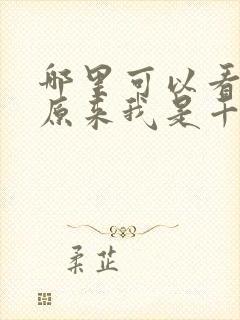 哪里可以看
原来我是十
柔芷